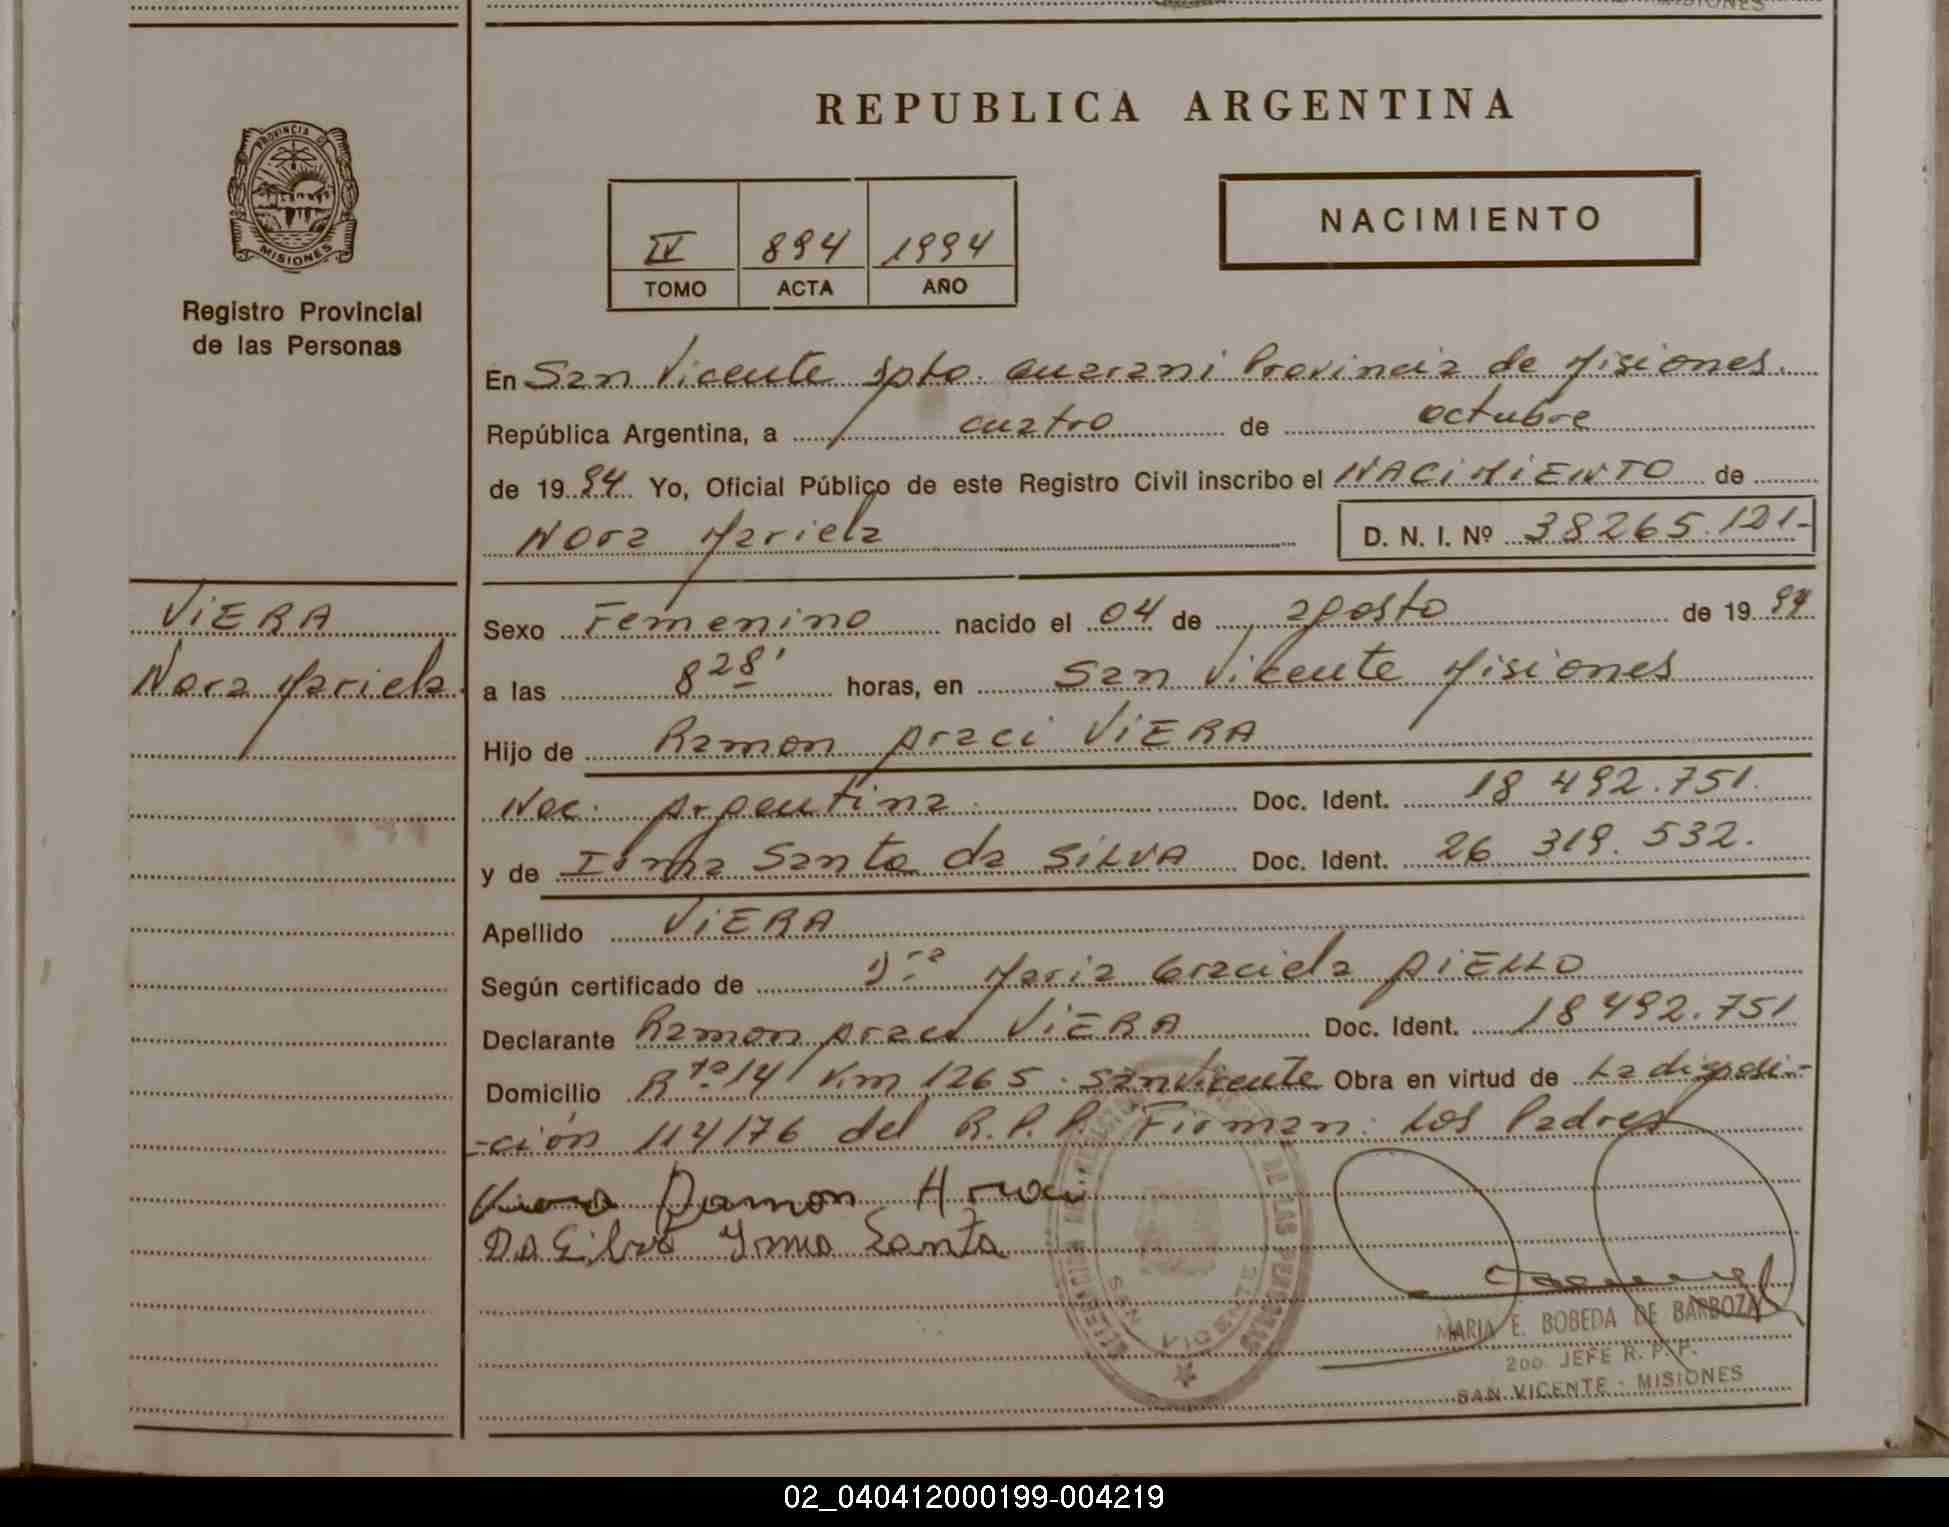 MISIONES
REPUBLICA ARGENTINA
PROVINCIA DE
MISIONES
Registro Provincial
de las Personas
IV 894 1994
TOMO ACTA AÑO
NACIMIENTO
En San Vicente Dpto. Guarani Provincia de Misiones.
República Argentina, a cuatro de octubre
de 1994 Yo, Oficial Público de este Registro Civil inscribo el NACIMIENTO de
Nora Mariela D. N. I. Nº 38265.121-
VIERA
Nora Mariela.
Sexo Femenino nacido el 04 de agosto de 1994
a las 8 28' horas, en San Vicente Misiones
Hijo de Ramon Araci VIERA
Nac. Argentina. Doc. Ident. 18 492.751.
y de Irma Santa da SILVA Doc. Ident. 26 319. 532.
Apellido VIERA
Según certificado de Dra Maria Graciela AIELLO
Declarante Ramon Araci VIERA Doc. Ident. 18 492.751
Domicilio Rta 14 Km 1265. San Vicente Obra en virtud de La disposi-
-ción 114/76 del R.P.P. Firman: Los Padres
Viera Ramon Araci
Da Silva Yrma Santa
DE LAS PERSONAS
MARIA E. BOBEDA DE BARBOZA
2do. JEFE R. P. P.
SAN VICENTE - MISIONES
02_040412000199-004219